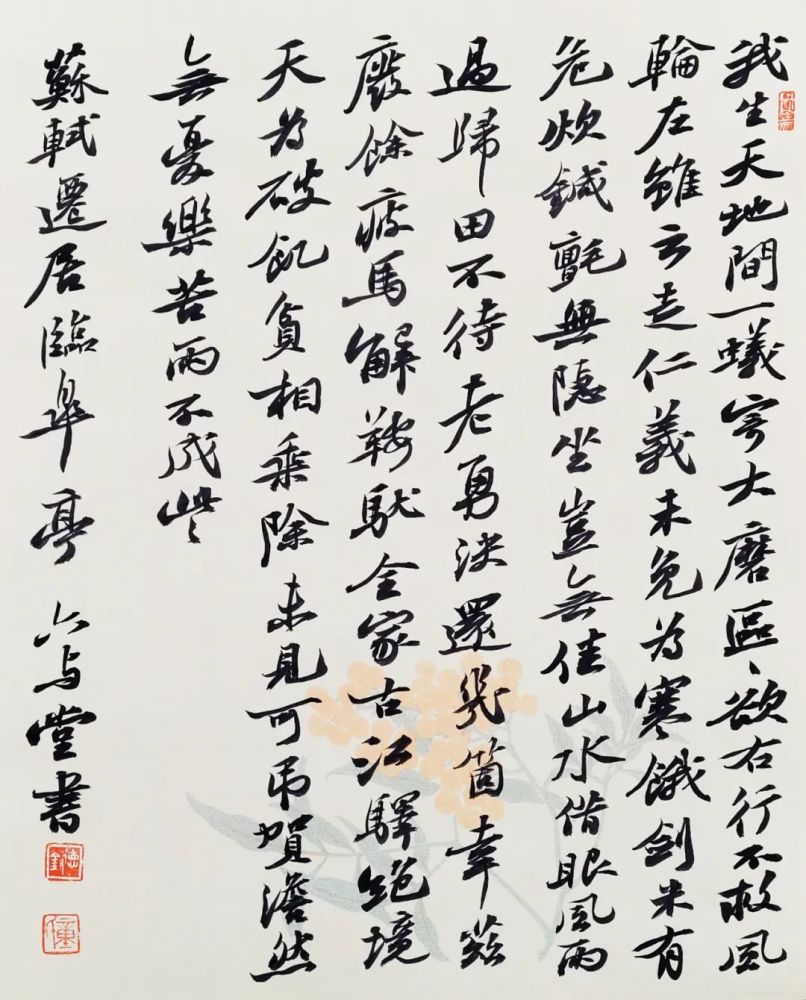 我生天地間一蟻寄大磨區〻欲右行不救風
輪左雖云走仁義未免為寒餓劍米有
危炊鍼氈無隱坐豈無佳山水借眼風雨
過歸田不待老勇決還幾箇幸茲
廢餘疲馬解鞍馱全家古江驛絕境
天為破飢貧相乘除未見可吊賀澹然
無憂樂苦雨不成些
蘇軾遷居臨皋亭 六与堂書